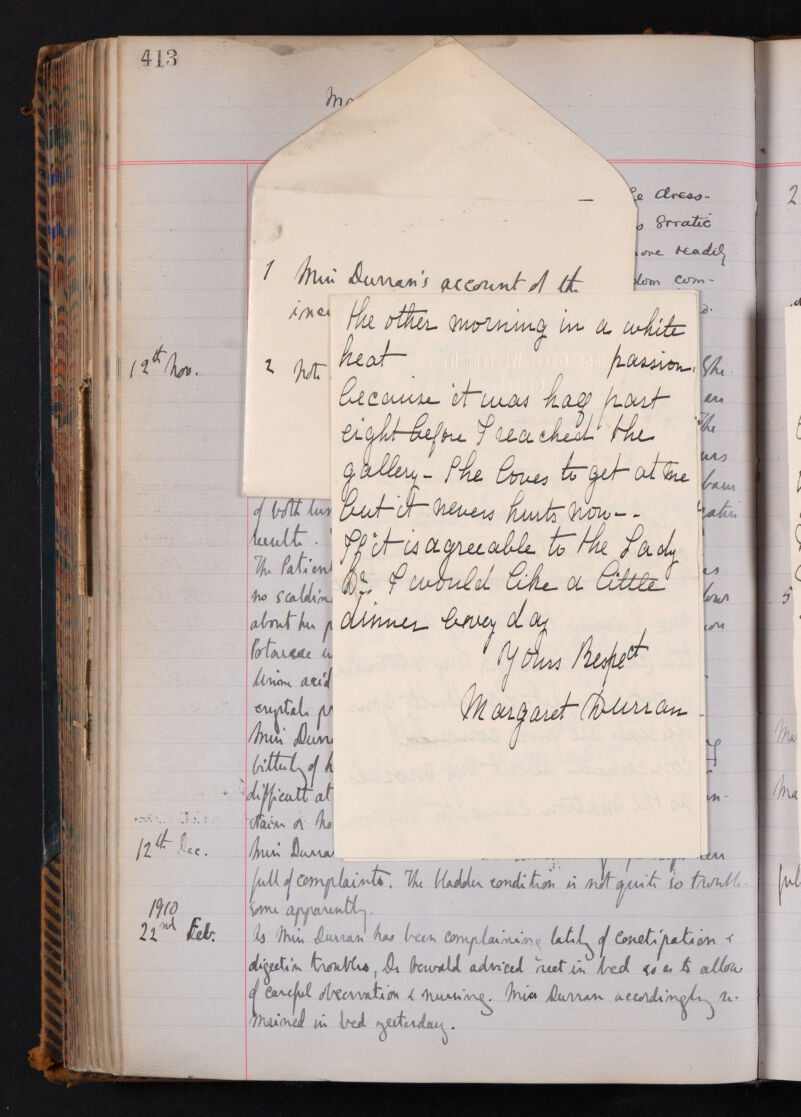 413
Ma
dress-
erratic
more readily
com-
1 Miss Durran's account of the
2 Note
the other morning in a white
heat passion,
because it was half past
eight before I reached the
gallery - She loves to get at me
but it nevers hurts now--
If it is agreeable to the Lady
Dr. I would like a little
dinner every day
Yours Respect
Margaret Durran
12th Nov.
She
an
The
of both
result.
The Patient
no scalding
about her
Potassae
Miss Durran
bitterly of h
difficult at
12th Dec.
Miss Durran
full of complaints. The bladder condition is not quite so trouble-
some apparently.
1910
22nd Feb.
As Miss Durran has been complaining lately of constipation &
digestion troubles, Dr advised rest in bed so as to allow
of careful observation & nursing. Miss Durran accordingly re-
mained in bed yesterday.
2
5
Ma
Ma
ful